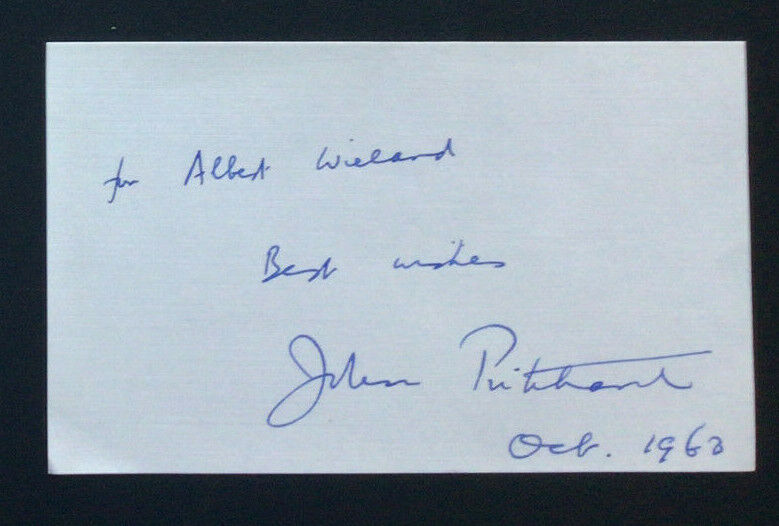 for Albert Wieland
Best wishes
John Pritchard
Oct. 1963